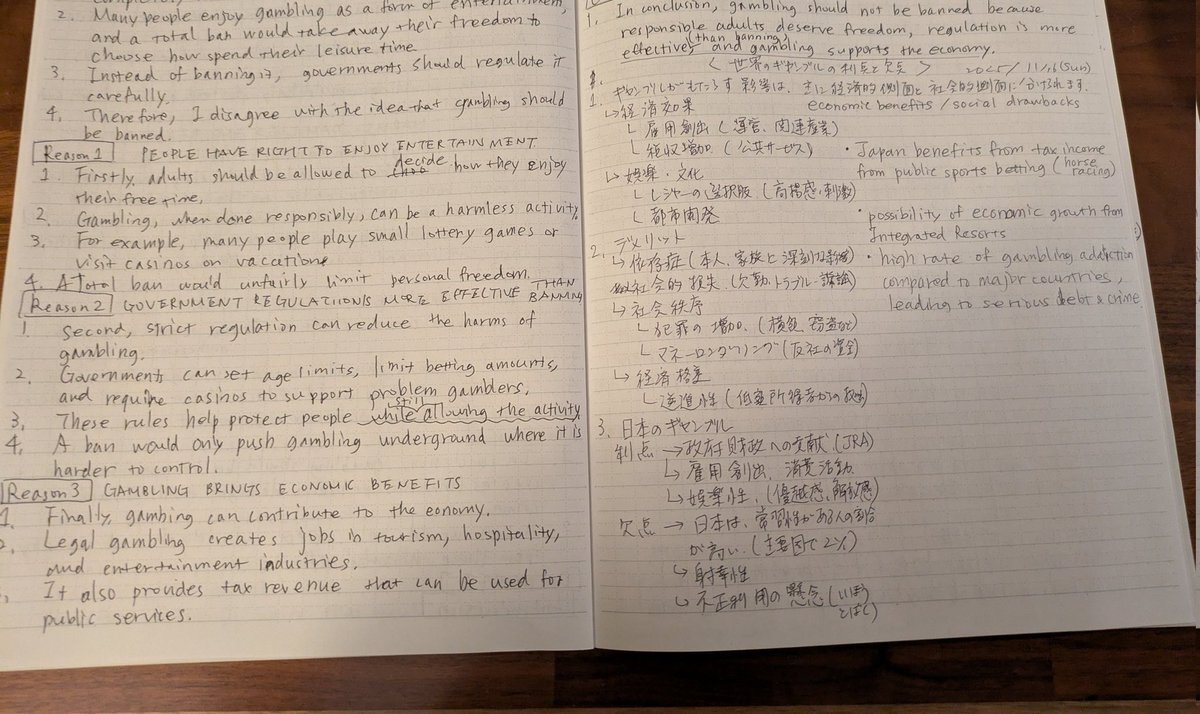 2. Many people enjoy gambling as a form of entertainment,
and a total ban would take away their freedom to
choose how spend their leisure time
3. Instead of banning it, governments should regulate it
carefully.
4. Therefore, I disagree with the idea that gambling should
be banned.
Reason 1 PEOPLE HAVE RIGHT TO ENJOY ENTERTAINMENT
1. Firstly, adults should be allowed to decide how they enjoy
their free time.
2. Gambling, when done responsibly, can be a harmless activity.
3. For example, many people play small lottery games or
visit casinos on vacations
4. A Total ban would unfairly limit personal freedom.
Reason 2 GOVERNMENT REGULATION IS MORE EFFECTIVE THAN BANNING
1. Second, strict regulation can reduce the harms of
gambling.
2. Governments can set age limits, limit betting amounts,
and require casinos to support problem gamblers.
3. These rules help protect people still while allowing the activity.
4. A ban would only push gambling underground where it is
harder to control.
Reason 3 GAMBLING BRINGS ECONOMIC BENEFITS
1. Finally, gambing can contribute to the eonomy.
2. Legal gambling creates jobs in tourism, hospitality,
and entertainment industries.
It also provides tax revenue that can be used for
public services.
1. In conclusion, gambling should not be banned because
responsible adults deserve freedom, regulation is more
effective (than banning) and gambling supports the economy.
< 世界のギャンブルの利点と欠点 > 2025/11/16(Sun)
1. ギャンブルがもたらす影響は、主に経済的側面と社会的側面に分けられます。
economic benefits / social drawbacks
↳ 経済効果
└ 雇用創出 (運営、関連産業)
└ 税収増加 (公共サービス)
・Japan benefits from tax income
from public sports betting (horse racing)
↳ 娯楽・文化
└ レジャーの選択肢 (高揚感・刺激)
└ 都市開発
・possibility of economic growth from
Integrated Resorts
2. デメリット
↳ 依存症 (本人、家族と深刻な影響)
・high rate of gambling addiction
compared to major countries,
leading to serious debt & crime.
社会的損失 (欠勤、トラブル
↳ 社会秩序
└ 犯罪の増加 (横領、窃盗など)
└ マネーロンダリング (反社の資金)
↳ 経済格差
└ 逆進性 (低所得者からの
3. 日本のギャンブル
利点 → 政府財政への貢献 (JRA)
↳ 雇用創出、消費活動
↳ 娯楽性 (優越感、解放感)
欠点 → 日本は、常習性がある人の割合
が高い (主要因で2%)
↳ 射幸性
↳ 不正利用の懸念